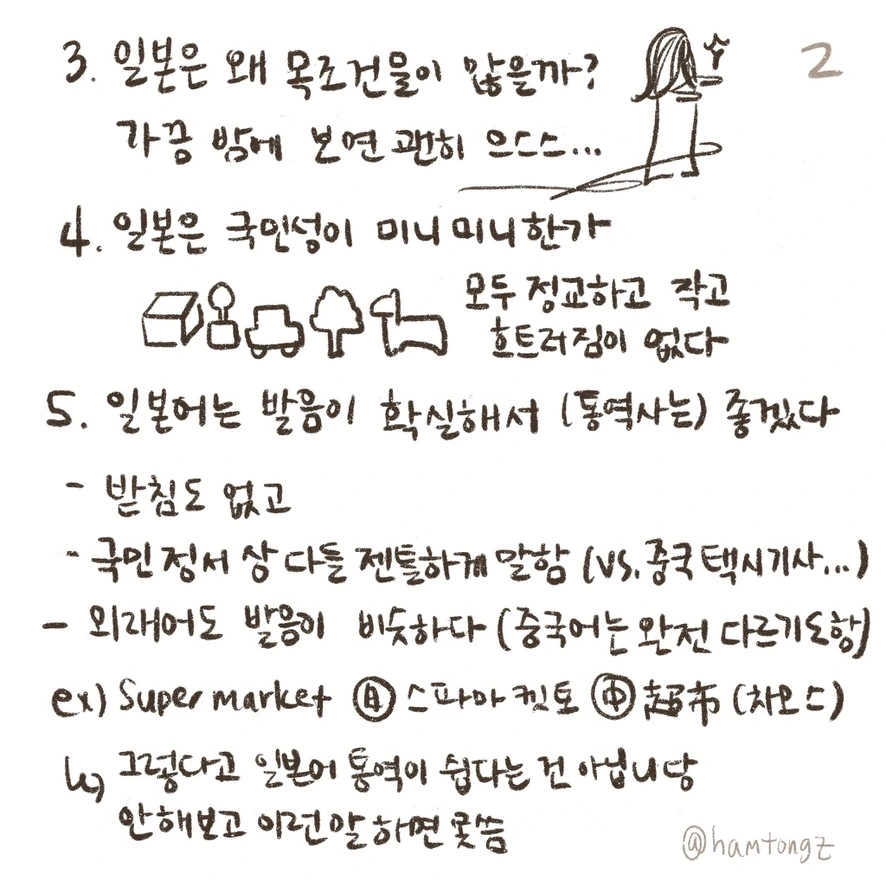 3. 일본은 왜 목조건물이 많을까?
2
가끔 밤에 보면 괜히 으스스...
4. 일본은 국민성이 미니미니한가
모두 정교하고 작고
흐트러짐이 없다
5. 일본어는 발음이 확실해서 (통역사는) 좋겠다
- 받침도 없고
- 국민정서상 다들 젠틀하게 말함 (vs. 중국 택시기사...)
- 외래어도 발음이 비슷하다 (중국어는 완전 다르기도함)
ex) Super market 日 스파아켓토 中 超市 (차오스)
↳ 그렇다고 일본어 통역이 쉽다는 건 아닙니당
안해보고 이런말하면 못씀
@hamtongz